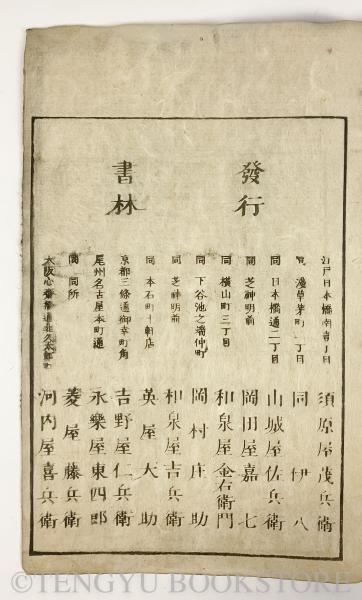 發行
書林
江戸日本橋南壹丁目 須原屋茂兵衛
同 淺草茅町二丁目 同 伊八
同 日本橋通二丁目 山城屋佐兵衛
同 芝神明前 岡田屋嘉七
同 横山町三丁目 和泉屋金右衛門
同 下谷池之端仲町 岡村庄助
同 芝神明前 和泉屋吉兵衛
同 本石町十軒店 英屋大助
京都三條通御幸町角 吉野屋仁兵衛
尾州名古屋本町通 永樂屋東四郎
同 同所 菱屋藤兵衛
大阪心齋橋通北久太郎町 河内屋喜兵衛
©TENGYU BOOKSTORE